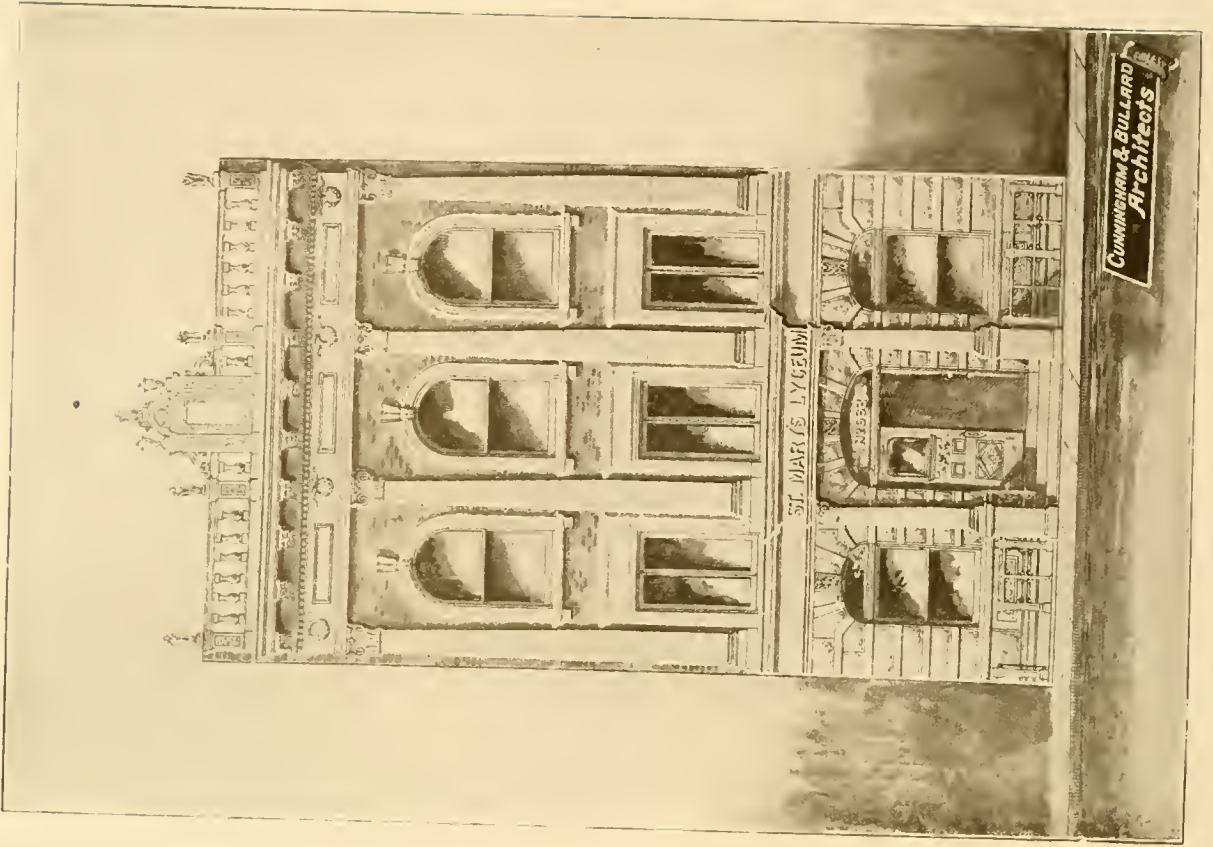 ST. MARY'S LYCEUM
CUNNINGHAM & BULLARD
Architects